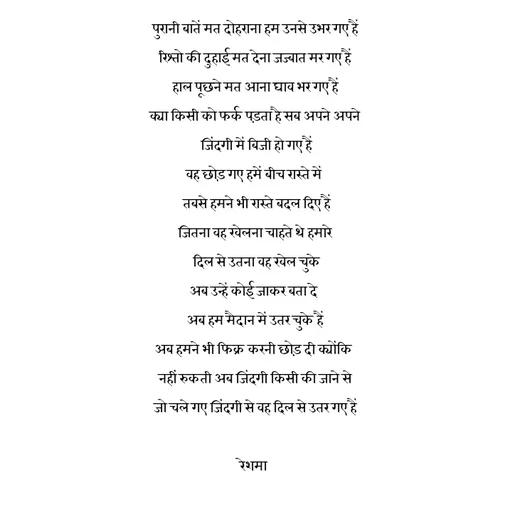 पुरानी बातें मत दोहराना हम उनसे उभर गए हैं
रिश्तो की दुहाई मत देना जज्बात मर गए हैं
हाल पूछने मत आना घाव भर गए हैं
क्या किसी को फर्क पड़ता है सब अपने अपने
जिंदगी में बिजी हो गए हैं
वह छोड़ गए हमें बीच रास्ते में
तबसे हमने भी रास्ते बदल दिए हैं
जितना वह खेलना चाहते थे हमारे
दिल से उतना वह खेल चुके
अब उन्हें कोई जाकर बता दे
अब हम मैदान में उतर चुके हैं
अब हमने भी फिक्र करनी छोड़ दी क्योंकि
नहीं रुकती अब जिंदगी किसी की जाने से
जो चले गए जिंदगी से वह दिल से उतर गए हैं
रेशमा